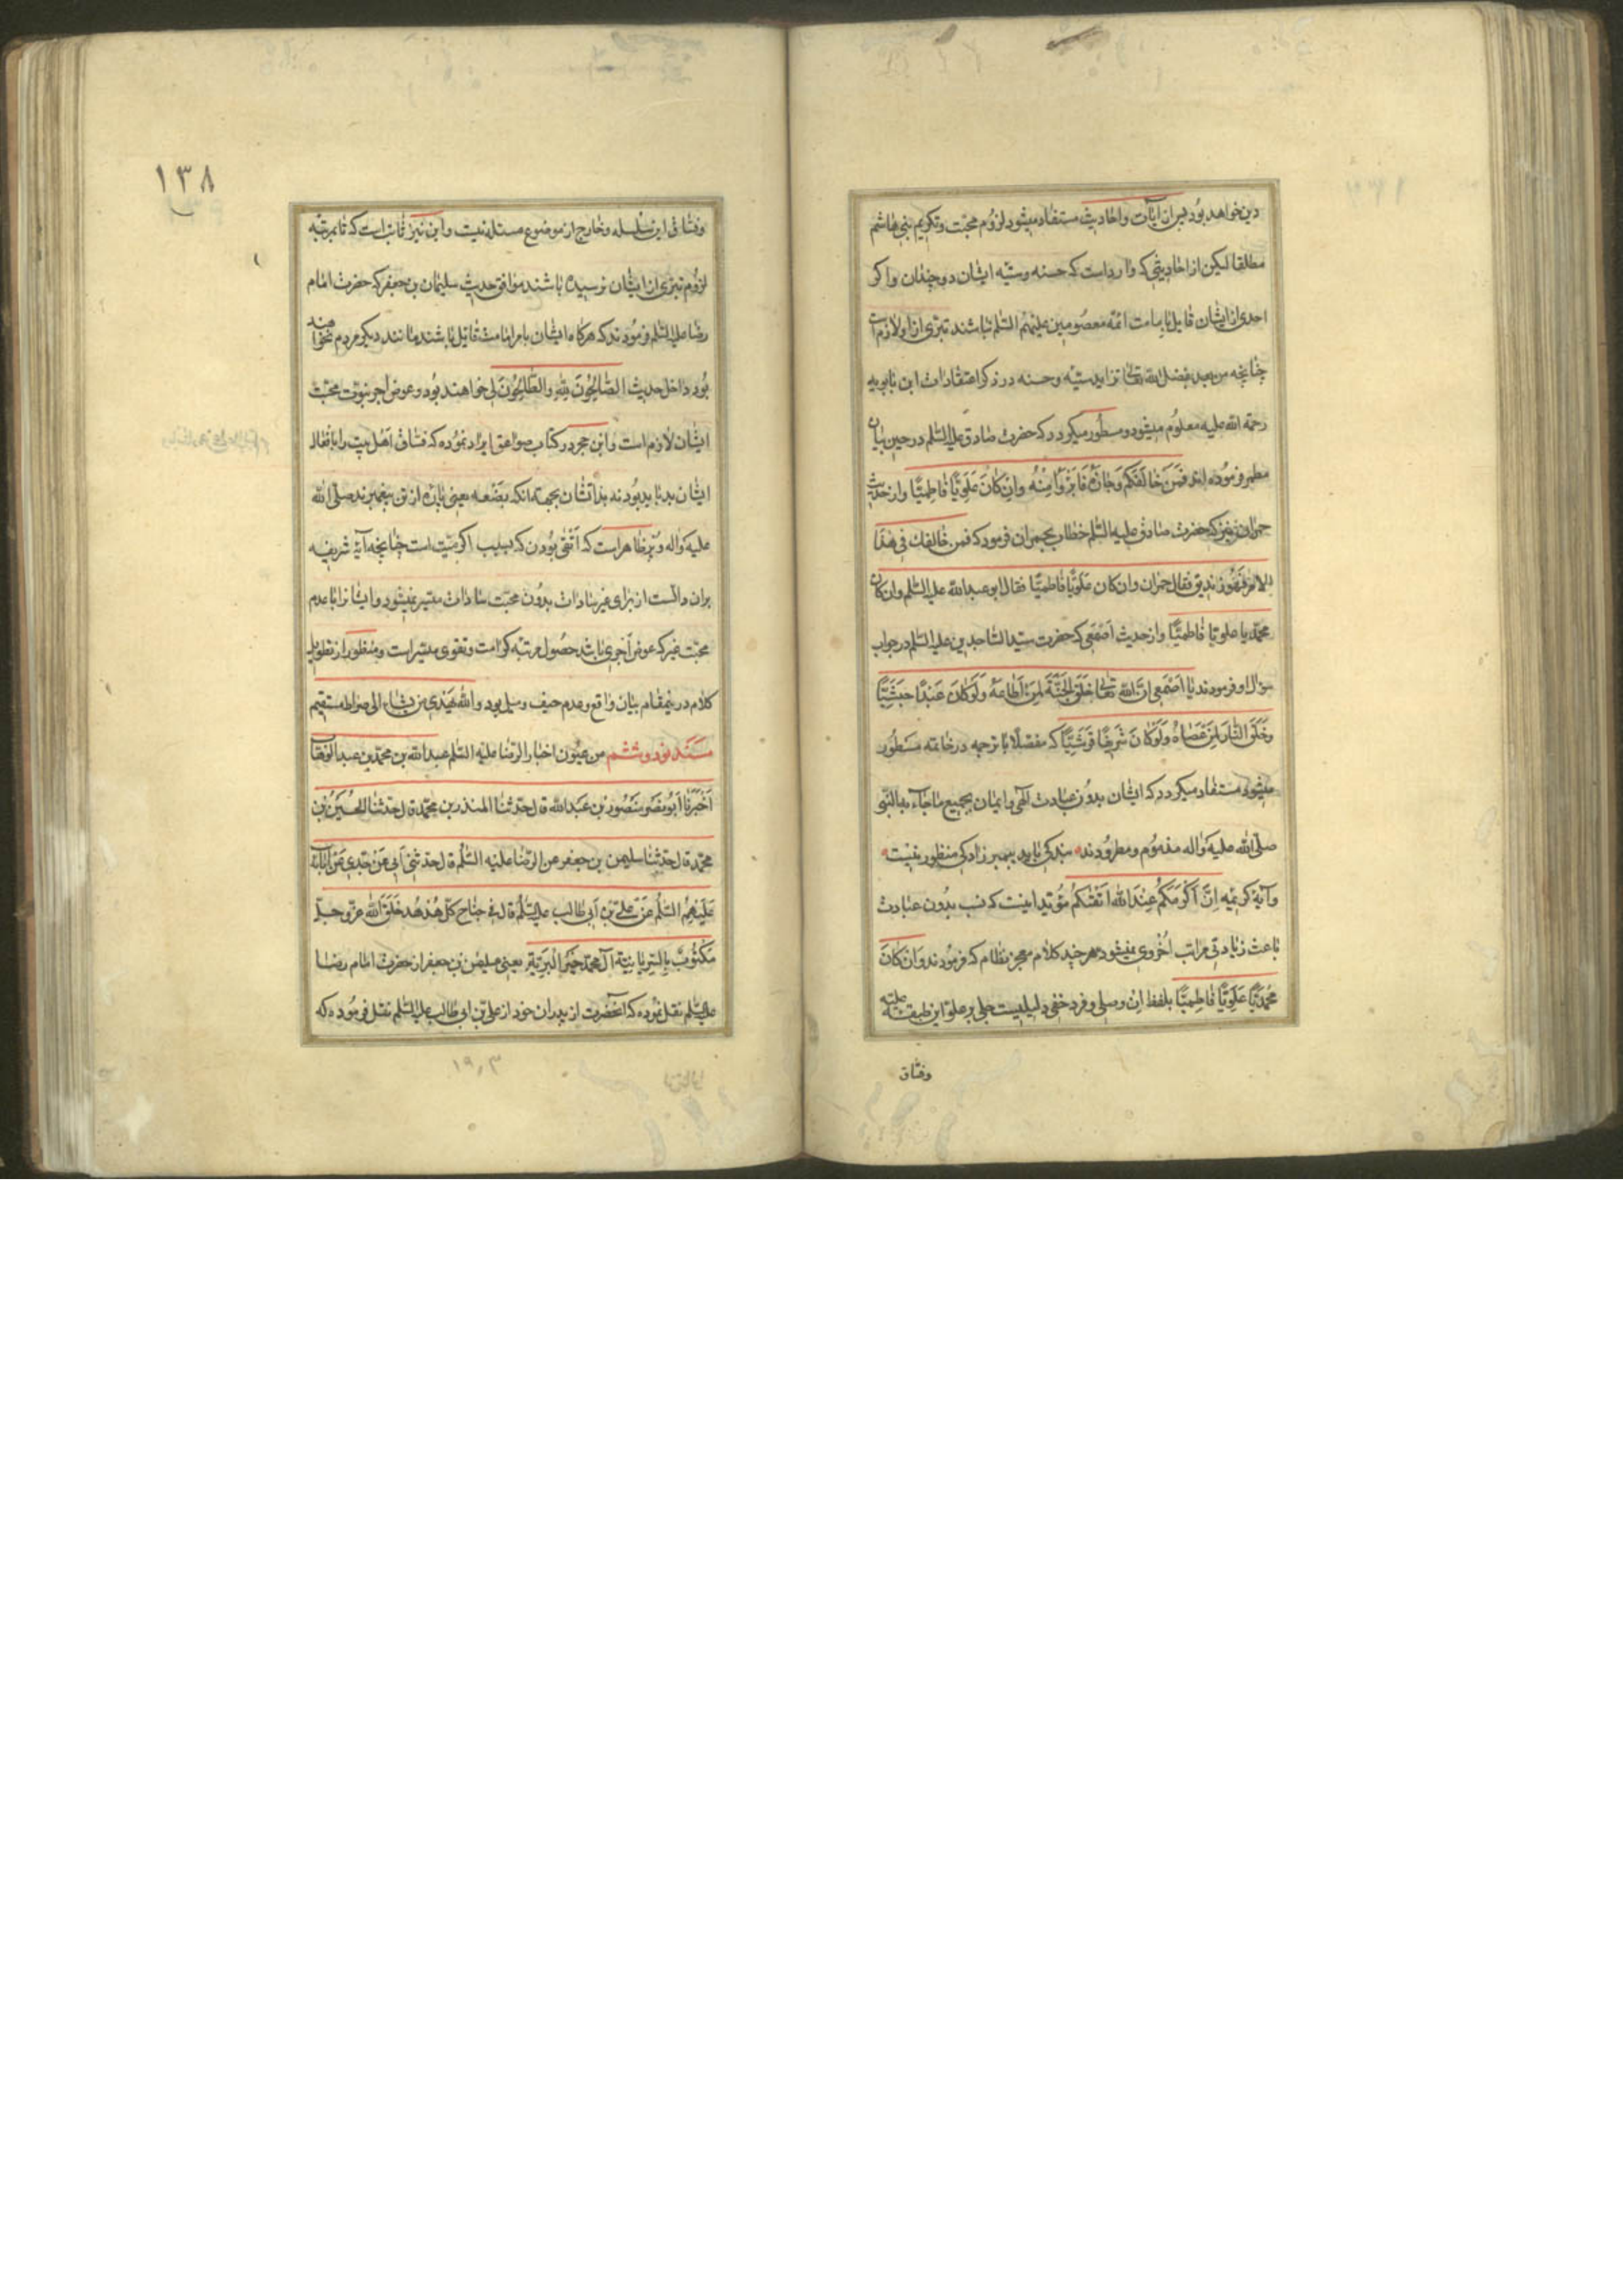 دین خواهد بود پس از آیات و احادیث مستفاد میشود لزوم محبّت و تکریم بنی هاشم
مطلقا لیکن از احادیثی که وارد است که حسنه و سیّئه ایشان دو چندان واکر
احدی از ایشان قایل بامامت ائمّه معصومین علیهم السّلم نباشند تبرّی از او لازمست
چنانچه من بعد بفضل الله تعالی تزاید سیّئه و حسنه در ذکر اعتقادات ابن بابویه
رحمة الله علیه معلوم میشود و مسطور میکردد که حضرت صادق علیه السّلم در حین بیان
مطمر فرموده اند فَمَنْ خَالَفَكُم وَجَازَهُ فَابْرَؤُا مِنْهُ وَاِنْ كَانَ عَلَوِيًّا فَاطِمِيًّا و از حدیث
حمران نیز که حضرت صادق علیه السّلم خطاب بحمران فرمود که فمن خالفك فی هذا
الامر فَهُوَ زندیق فقال حمران وان کان عَلَوِيًّا فَاطِمِيًّا فقال ابو عبدالله علیه السّلم وان کان
محمّدیا علویّا فاطمیًّا و از حدیث اَصْمَعی که حضرت سیّد الساجدین علیه السّلم در جواب
سؤال او فرمودند یا اَصْمَعی اِنَّ اللّه تعالی خَلَقَ الْجَنَّةَ لِمَنْ اَطَاعَهُ وَلَوْ كَانَ عَبْدًا حَبَشِيًّا
وَخَلَقَ النَّارَ لِمَنْ عَصَاهُ وَلَوْ كَانَ شَرِيفًا قُرَشِيًّا که مفصّلًا با ترجمه در خاتمه مسطور
میشود مستفاد میکردد که ایشان بدون عبادت الهی و ایمان بجمیع ما جآء به النّبی
صلّی الله علیه و اله مذموم و مطرودند بندکی باید پیمبر زادکی منظور نیست
و آیهٔ کریمه اِنَّ اَكْرَمَكُمْ عِنْدَ اللّهِ اَتْقٰیكُمْ مؤیّد اینست که نسب بدون عبادت
باعث زیادتی مراتب اُخْروی نمیشود هر چند کلام معجز نظام که فرمودند وَاِنْ كَانَ
مُحَمَّدِيًّا عَلَوِيًّا فَاطِمِيًّا بلفظ اِنْ وصلی و فرد خفی دلیلیست جلی بر علوّ این طبقه علیّه
وفسّاق
۱۳۸
وفسّاق این سلسله و خارج از موضوع مسئله نیست و ابن نیز ثابت است که تا بمرتبه
لزوم تبرّی از ایشان نرسیده باشند موافق حدیث سلیمان بن جعفر که حضرت امام
رضا علیه السّلم فرمودند که هرکاه ایشان بامر امامت قایل باشند مانند دیکر مردم نخواهند
بود داخل حدیث الصَّالِحُونَ لِلّهِ وَالطَّالِحُونَ لِي خواهند بود و عوض اجر نبوّت محبّت
ایشان لازم است و ابن حجر در کتاب صواعق ایراد نموده که فسّاق اهل بیت را با فعال
ایشان بد باید بود نه بذاتشان بجهت انکه بَضْعه یعنی پاره از تن پیغمبرند صلّی الله
علیه و اله و نیز ظاهر است که اَتْقٰی بودن که سبب اکرمیّت است چنانچه آیهٔ شریفه
بران دالّست از برای غیر سادات بدون محبّت سادات میسّر نمیشود و ایشانرا با عدم
محبّت غیر که عوض اُخروی باشد حصول مرتبه کرامت و تقوی میسّر است و منظور از تطویل
کلام در ینمقام بیان واقع و عدم حیف و میل بود والله یَهْدی من یشاء الی صراط مستقیم
سَنَد نود و ششم من عیون اخبار الرّضا علیه السّلم عبدالله بن محمّد بن عبد الوهّاب
اَخْبَرَنَا اَبُو نصر مَنْصُور بن عَبدالله قال حدّثنا المنذر بن محمّد قال حدثنا الحُسَیْنُ بْن
محمّد قال حدّثنا سلیمن بن جعفر عن الرّضا علیه السّلم قال حدّثنی اَبی عَنْ جَدّی عَنْ آبائه
عَلَيْهِمُ السَّلٰمُ عَنْ عَلِيِّ بْنِ اَبي طالب علیه السّلم قال في جناح کلّ هُدْهُد خَلَقَ اللّه عزّ و جلّ
مَكْتُوبٌ بِالسّريانيّة آل محمّد خَيْرُ الْبَرِيَّةِ یعنی سلیمن بن جعفر از حضرت امام رضا
علیه السّلم نقل نموده که آنحضرت از پدران خود از علیّ بن ابی طالب علیه السّلم نقل فرموده که